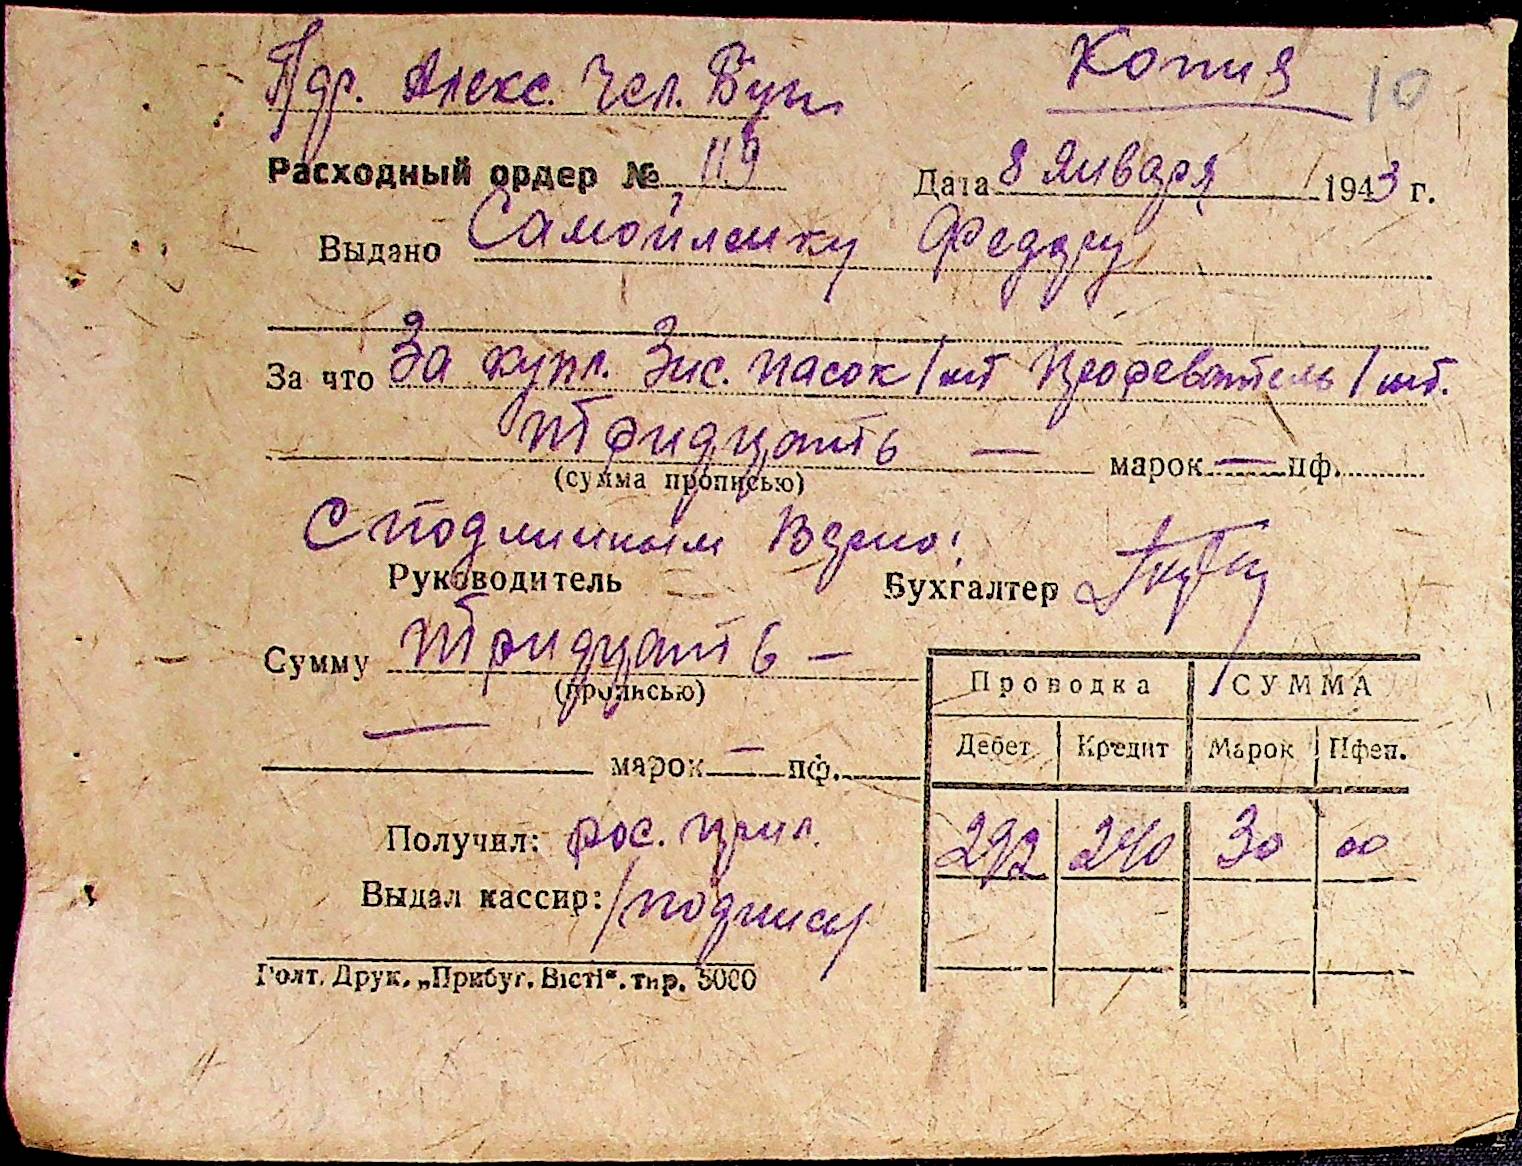 Копия 10
Расходный ордер № 119 Дата 8 Января 1943 г.
Выдано Самойленку Федору
За что За купл. насок 1 шт 1 шт.
Тридцать — марок — пф.
(сумма прописью)
С подлинным верно:
Руководитель Бухгалтер
Сумму Тридцать —
(прописью)
— марок — пф.
Проводка СУММА
Дебет Кредит Марок Пфен.
292 240 30 00
Получил: рос. прил.
Выдал кассир: /подпись/
Голт. Друк. „Прибуг. Вісті“. тир. 5000